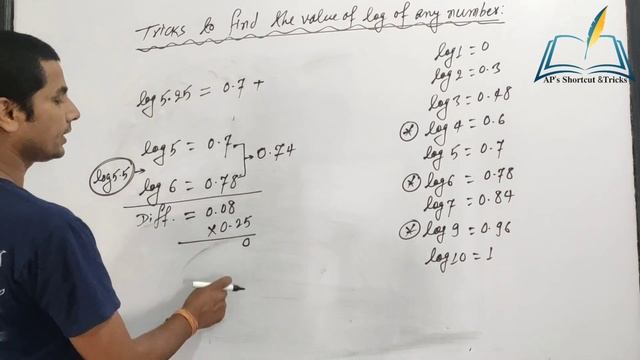 Tricks to find the value of log of any number:
log 5.25 = 0.7 +
log 5 = 0.7
0.74
log 5.5
log 6 = 0.78
Diff. = 0.08
×0.25
0
log 1 = 0
log 2 = 0.3
log 3 = 0.48
* log 4 = 0.6
log 5 = 0.7
* log 6 = 0.78
log 7 = 0.84
* log 9 = 0.96
log 10 = 1
AP's Shortcut &Tricks